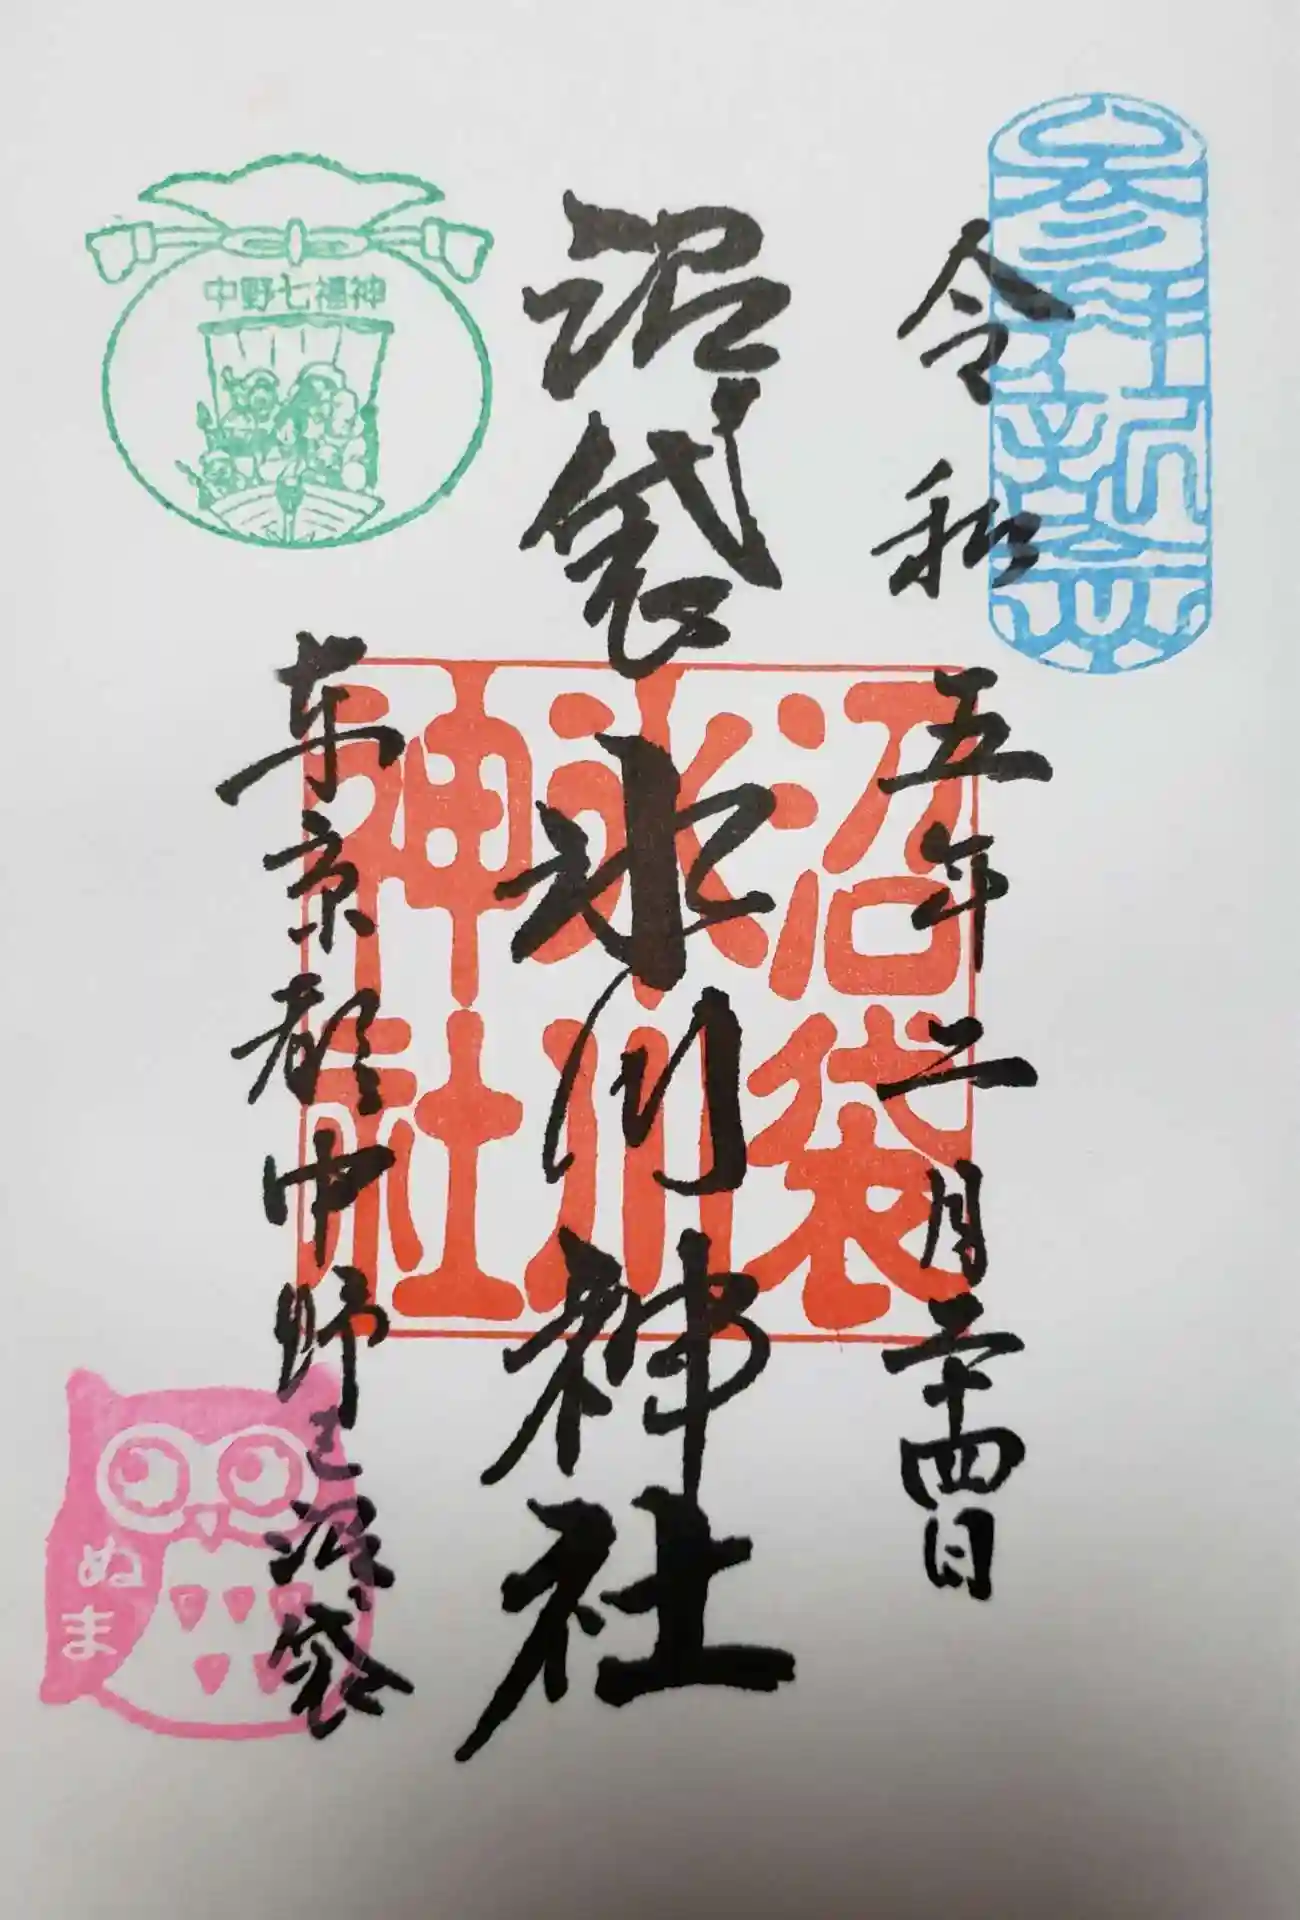 参拝祈念
令和五年二月二十四日
沼袋氷川神社
沼袋
氷川
神社
中野七福神
東京都中野区沼袋
ぬま